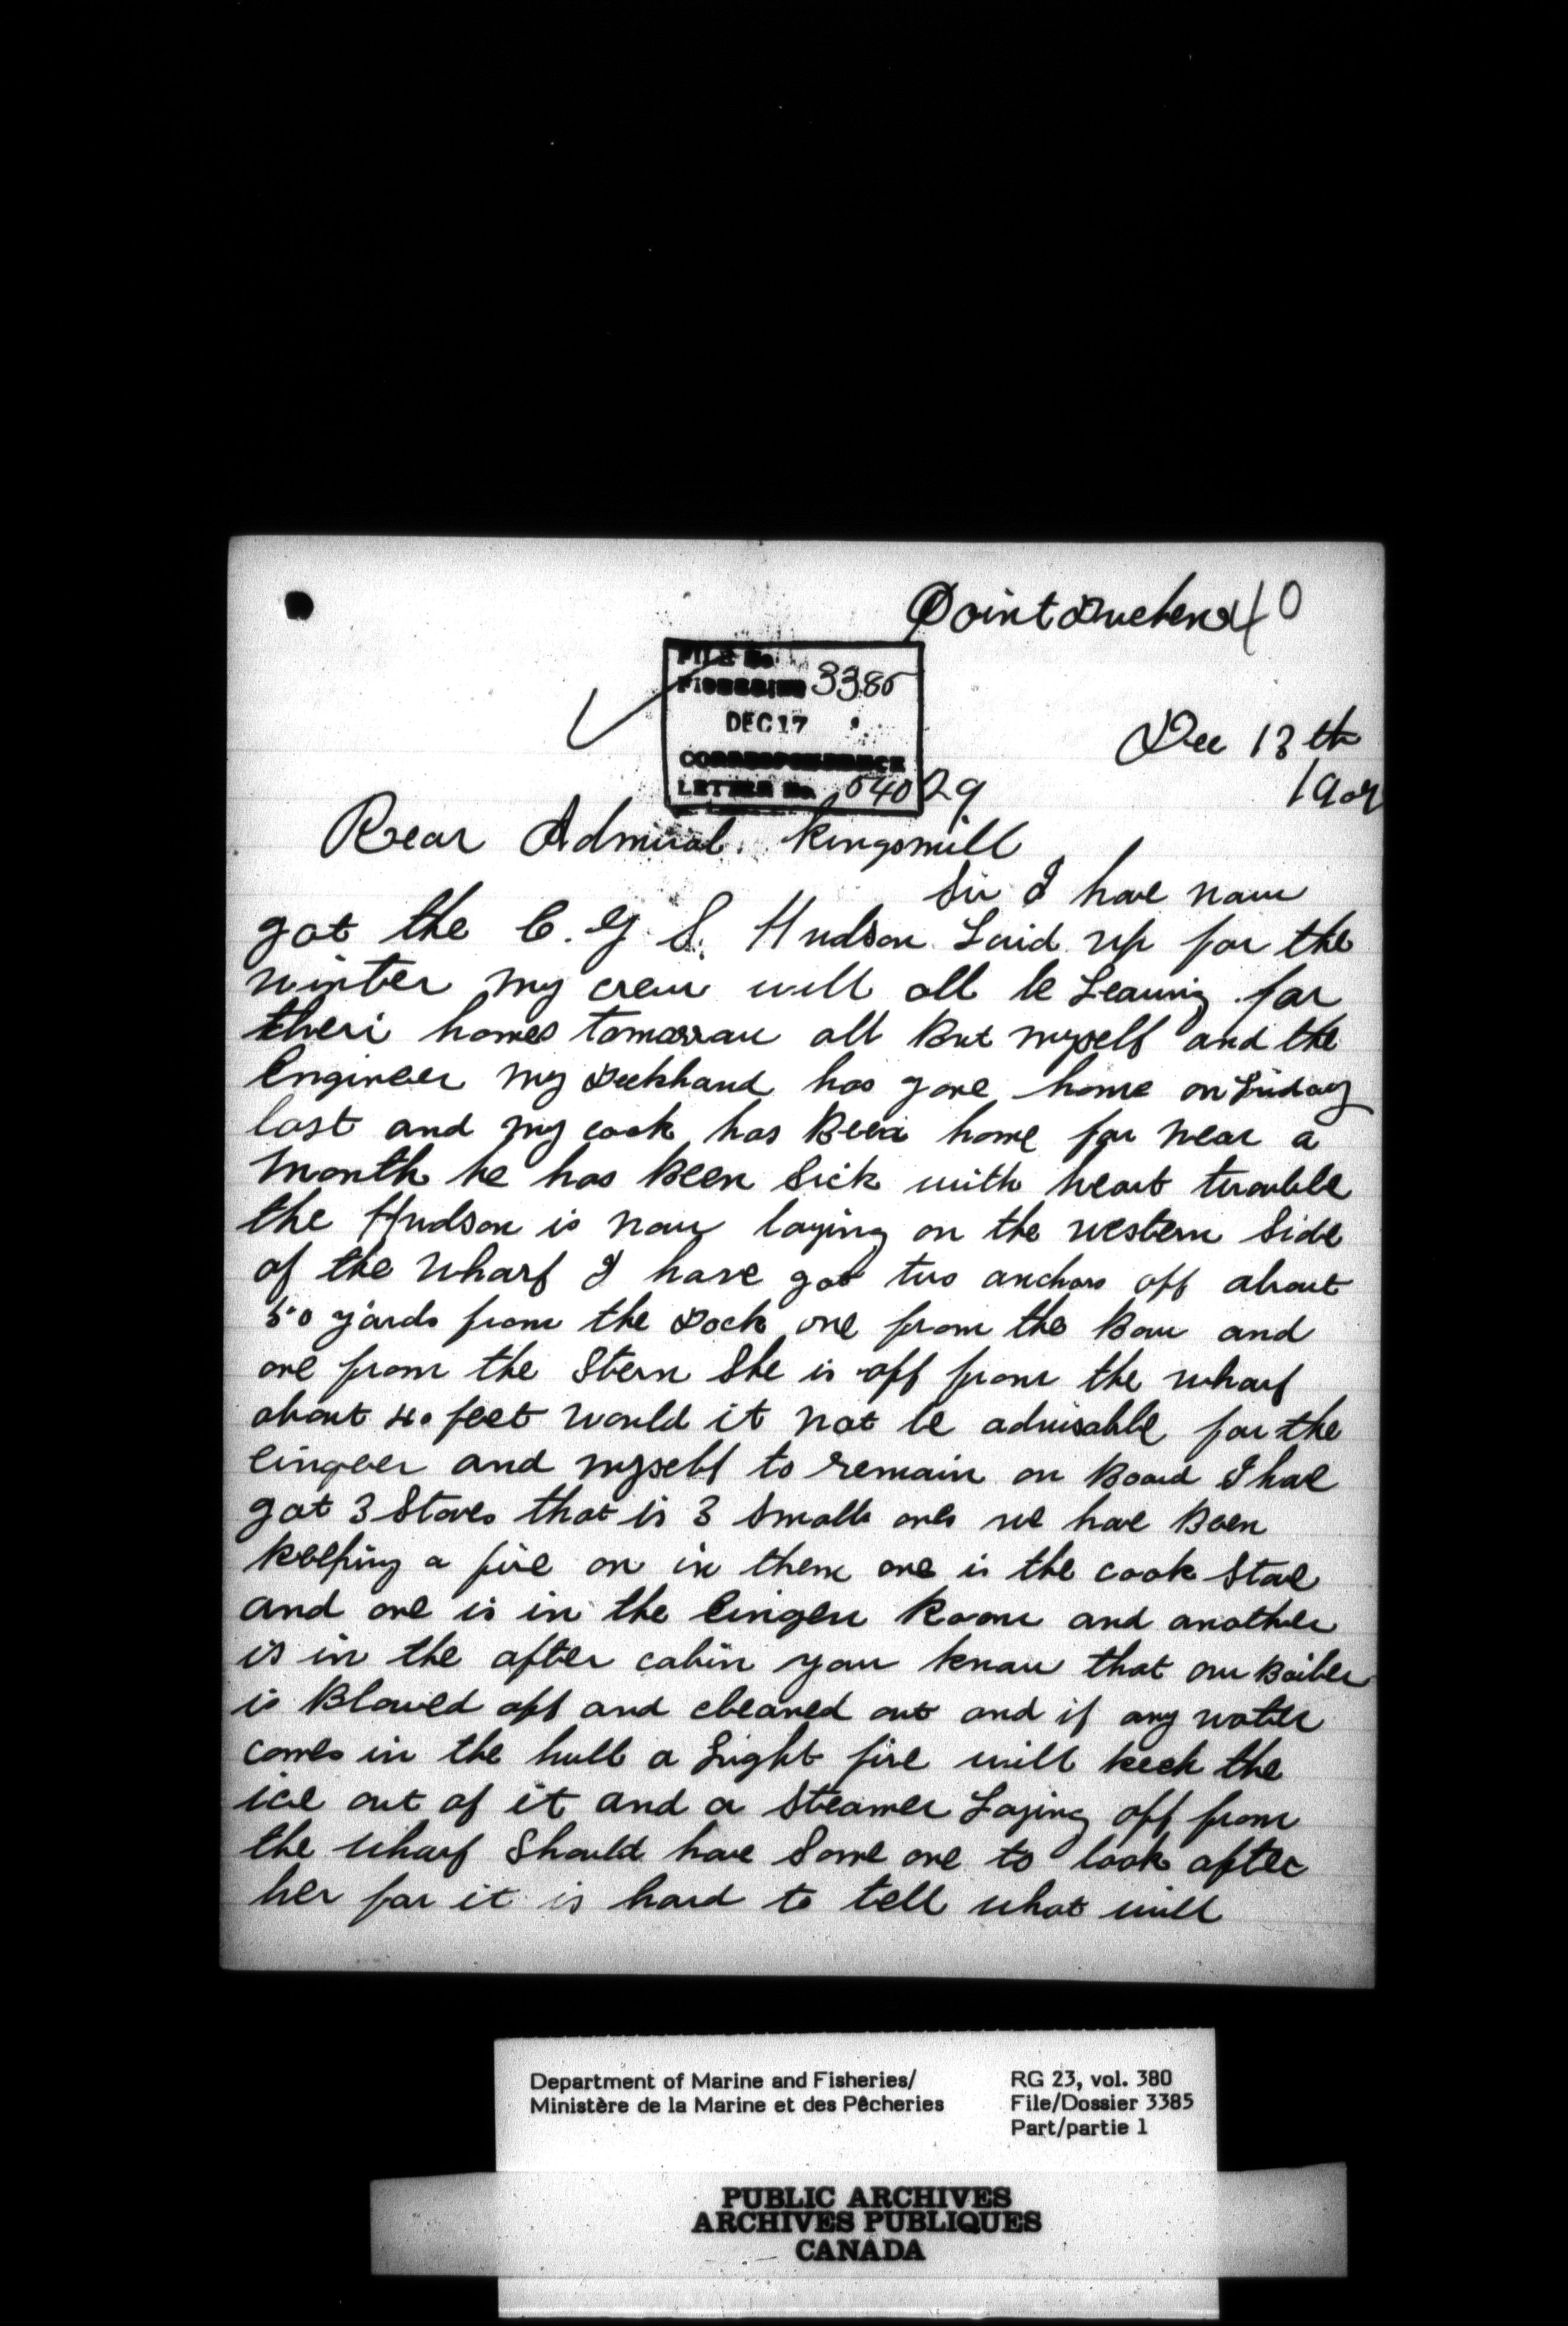 Point Duchene 40
FILE No.
FISHERIES 3385
DEC 17
CORRESPONDENCE
LETTER No. 54029
Dec 13th
1909
Rear Admiral. Kingsmill
Sir I have now
got the C. G. S. Hudson Laid up for the
winter my crew will all be Leaving for
theri homes tomorrow all But myself and the
Engineer my Deckhand has gone home on Friday
last and my cook has Been home for near a
month he has Been Sick with heart trouble
the Hudson is now laying on the western Side
of the wharf I have got two anchors off about
50 yards from the Dock one from the Bow and
one from the Stern She is off from the wharf
about 40 feet would it not be advisable for the
eingeer and myself to remain on Board I have
got 3 Stoves that is 3 Small ones we have Been
Keeping a fire on in them one is the cook Stove
and one is in the eingen Room and another
is in the after cabin you know that our Boiler
is Blowed off and cleaned out and if any water
comes in the hull a Light fire will keek the
ice out of it and a Steamer Laying off from
the wharf Should have Some one to look after
her for it is hard to tell what will
Department of Marine and Fisheries/
Ministère de la Marine et des Pêcheries
RG 23, vol. 380
File/Dossier 3385
Part/partie 1
PUBLIC ARCHIVES
ARCHIVES PUBLIQUES
CANADA